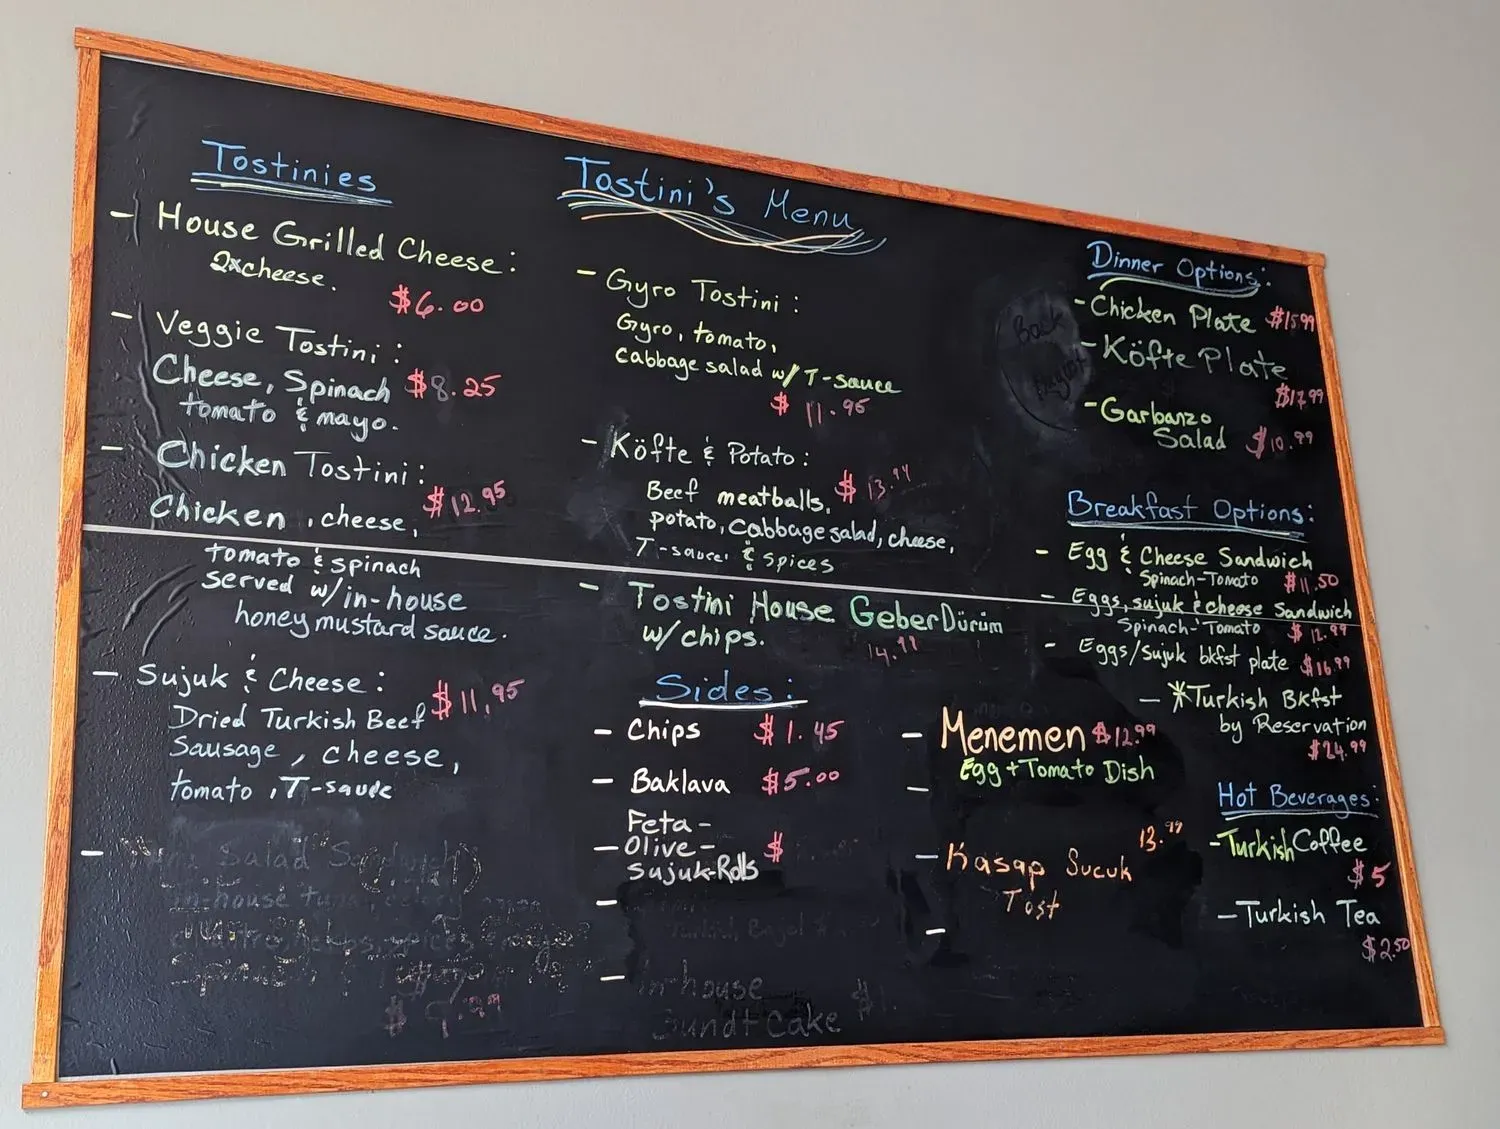 Tostinies
- House Grilled Cheese:
2xcheese.
$6.00
- Veggie Tostini:
Cheese, Spinach $8.25
tomato & mayo.
- Chicken Tostini:
$12.95
Chicken, cheese,
tomato & spinach
served w/in-house
honey mustard sauce.
- Sujuk & Cheese:
$11,95
Dried Turkish Beef
Sausage, cheese,
tomato, T-sauce
- Salad Sandwich
in-house
Tostini's Menu
- Gyro Tostini:
Gyro, tomato,
cabbage salad w/ T-sauce
$11.95
- Köfte & Potato:
Beef meatballs,
potato, cabbage salad, cheese,
T-sauce & spices
- Tostini House GeberDürüm
w/chips.
Sides:
- Chips $1.45
- Baklava $5.00
Feta-
- Olive- $
Sujuk-Rolls
-
- in-house
Bundt Cake
- Menemen $12.99
Egg + Tomato Dish
-
13.99
- Kasap Sucuk
Tost
-
Dinner Options:
- Chicken Plate $15.99
- Köfte Plate
$17.99
- Garbanzo
Salad $10.99
Breakfast Options:
- Egg & Cheese Sandwich
Spinach-Tomato $11.50
- Eggs, sujuk & cheese Sandwich
Spinach-Tomato $12.99
- Eggs/Sujuk bkfst plate $16.99
- *Turkish Bkfst
by Reservation
$24.99
Hot Beverages:
- Turkish Coffee
$5
- Turkish Tea
$2.50